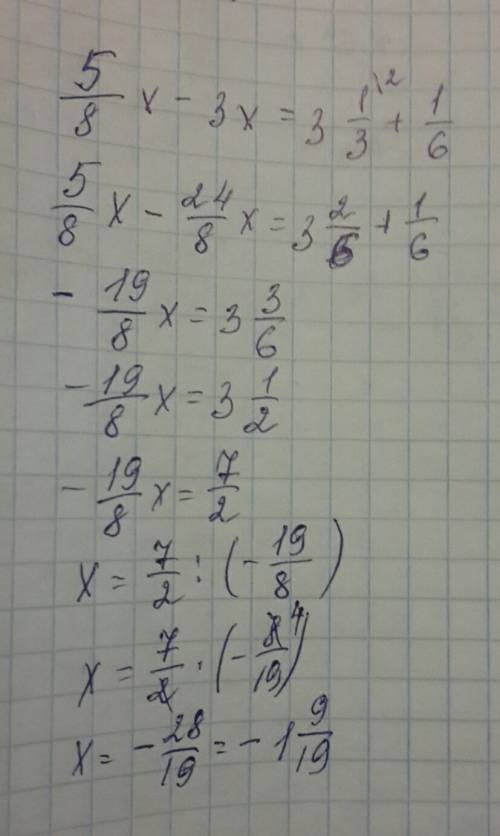 5/8 x - 3x = 3 1/3 \2 + 1/6
5/8 x - 24/8 x = 3 2/6 + 1/6
- 19/8 x = 3 3/6
- 19/8 x = 3 1/2
- 19/8 x = 7/2
x = 7/2 : (- 19/8)
x = 7/2 · (- 8/19 4)
x = - 28/19 = - 1 9/19